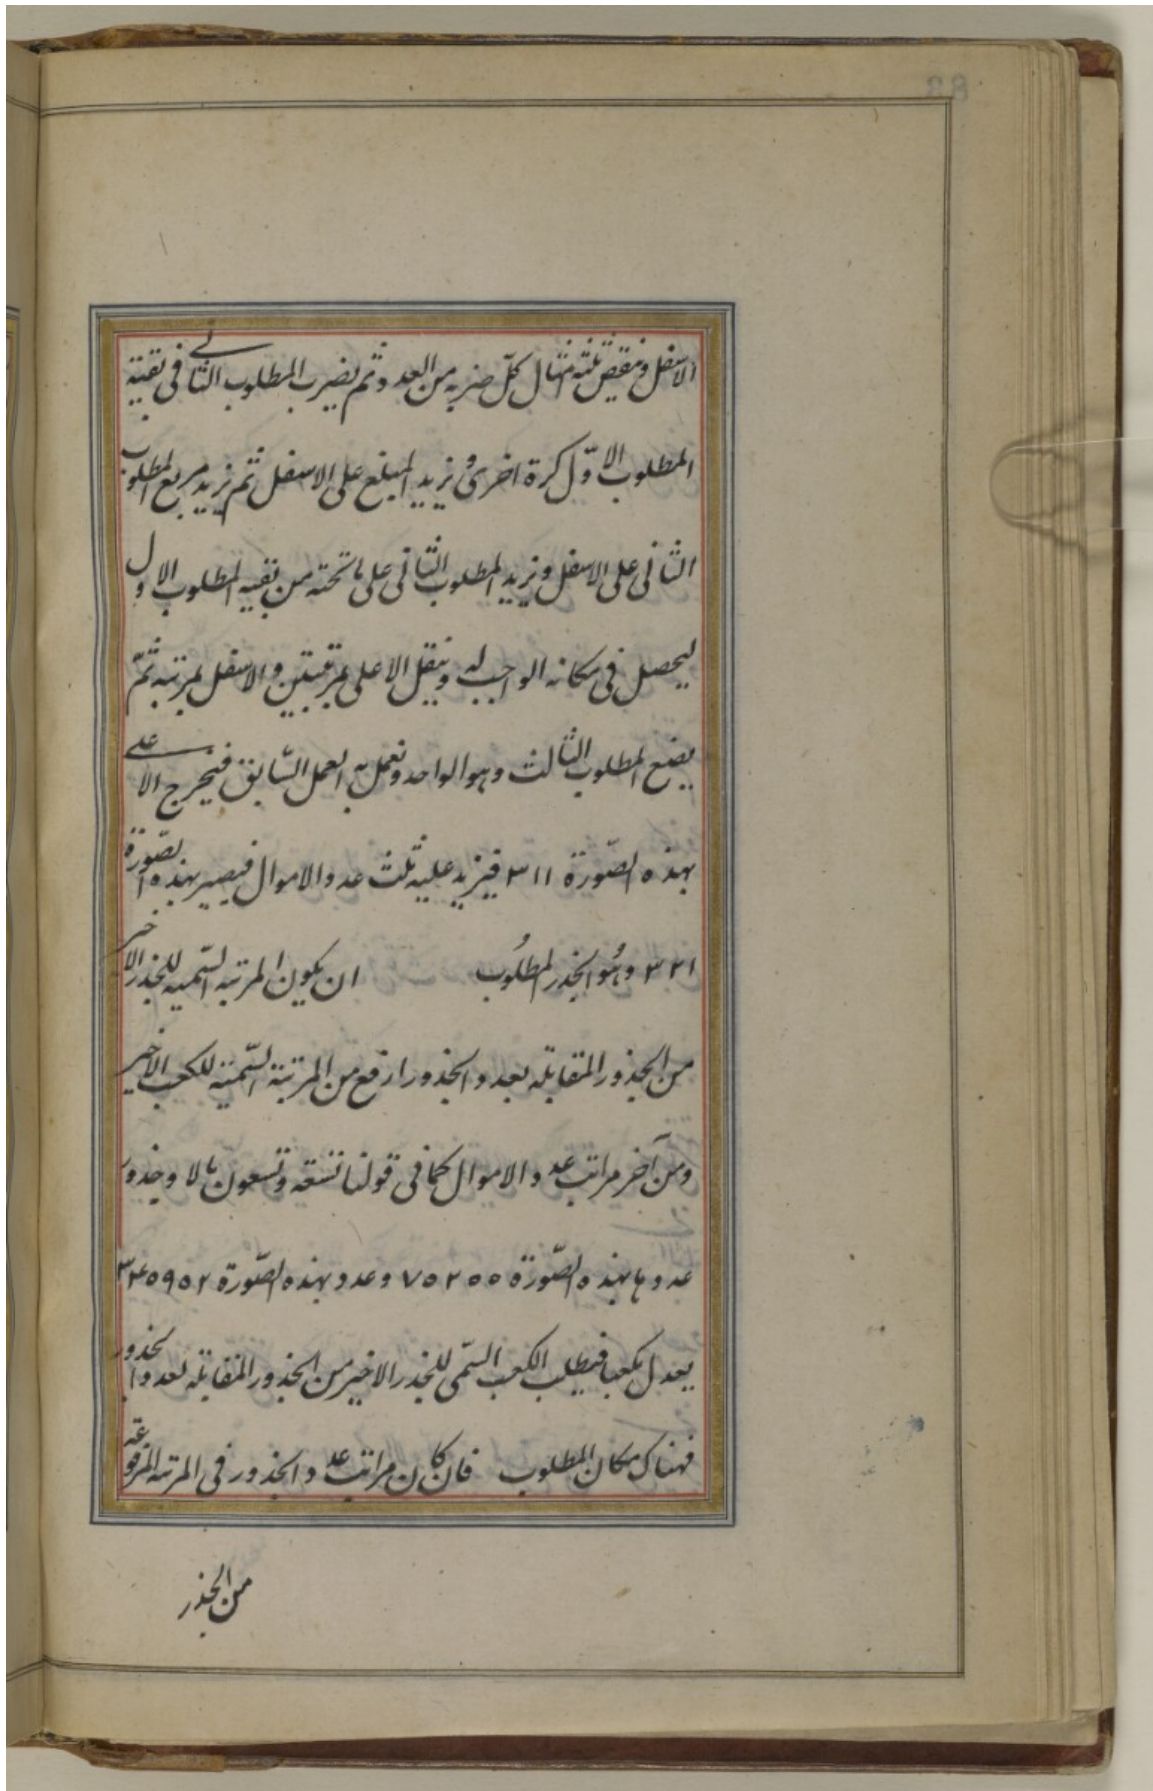 الاسفل وننقص ثلثة امثال كل ضربه من العدد ثم يضرب المطلوب الثانى فى بقية
المطلوب الاول كرة اخرى و نزيد المبلغ على الاسفل ثم نزيد مربع المطلوب
الثانى على الاسفل و نزيد المطلوب الثانى على ما تحته من بقيه المطلوب الاول
ليحصل فى مكانه الواجب له وننقل الاعلى بمرتبتين والاسفل بمرتبه ثم
يضع المطلوب الثالث وهو الواحد ونعمل به العمل السابق فيخرج الاعلى
بهذه الصورة ٣١١ فيزيد عليه ثلث عدد الاموال فيصير بهذه الصورة
٣٢١ وهو الجذر المطلوب ان يكون المرتبه السميه للجذر الاخير
من الجذور المقابله بعدد الجذور ارفع من المرتبة السمية للكعب الاخير
ومن آخر مراتب عدد الاموال كما فى قولنا تسعة وتسعون مالا وجذور
عددها بهذه الصورة ٧٥٢٥٥ وعدد بهذه الصورة ٣٤٥٩٥٢
يعدل كعبا فيطلب الكعب السمى للجذر الاخير من الجذور المقابله لعدد الجذور
فهناك مكان المطلوب فان كان مراتب عدد الجذور فى المرتبه المرفوعة
من الجذر
83